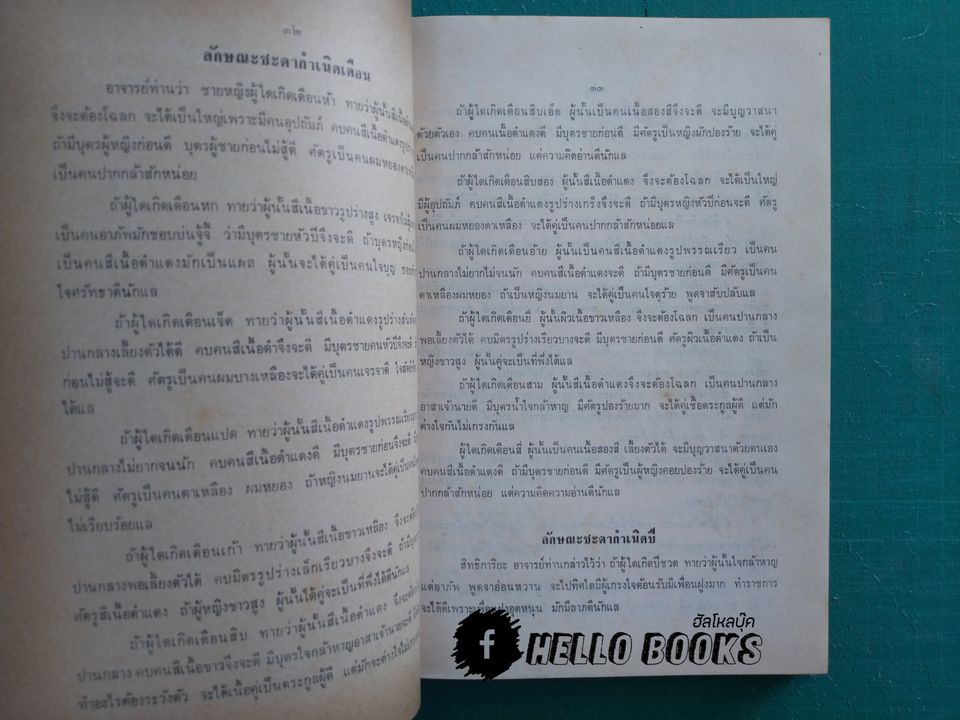 ๓๒
ลักษณะชะตากำเนิดเดือน
อาจารย์ท่านว่า ชายหญิงผู้ใดเกิดเดือนห้า ทายว่าผู้นั้นสีเนื้อดำแดง
จึงจะต้องโฉลก จะได้เป็นใหญ่เพราะมีคนอุปถัมภ์ คบคนสีเนื้อดำแดงรูปร่าง
ถ้ามีบุตรผู้หญิงก่อนดี บุตรผู้ชายก่อนไม่สู้ดี ศัตรูเป็นคนผมหยองตา
เป็นคนปากกล้าสักหน่อย
ถ้าผู้ใดเกิดเดือนหก ทายว่าผู้นั้นสีเนื้อขาวรูปร่างสูง เจรจา
เป็นคนอาภัพมักชอบบ่นจู้จี้ ว่ามีบุตรชายหัวปีจึงจะดี ถ้าบุตรหญิง
เป็นคนสีเนื้อดำแดงมักเป็นแผล ผู้นั้นจะได้คู่เป็นคนใจบุญ
ใจศรัทธาดีนักแล
ถ้าผู้ใดเกิดเดือนเจ็ด ทายว่าผู้นั้นสีเนื้อดำแดงรูปร่าง
ปานกลางเลี้ยงตัวได้ดี คบคนสีเนื้อดำจึงจะดี มีบุตรชายคนหัวปีจึงจะดี
ก่อนไม่สู้จะดี ศัตรูเป็นคนผมบางเหลืองจะได้คู่เป็นคนเจรจาดี
ได้แล
ถ้าผู้ใดเกิดเดือนแปด ทายว่าผู้นั้นสีเนื้อดำแดงรูปพรรณเรียว
ปานกลางไม่ยากจนนัก คบคนสีเนื้อดำแดงดี มีบุตรชายก่อนจึงจะดี
ไม่สู้ดี ศัตรูเป็นคนตาเหลือง ผมหยอง ถ้าหญิงนมยานจะได้คู่เป็นคน
ไม่เรียบร้อยแล
ถ้าผู้ใดเกิดเดือนเก้า ทายว่าผู้นั้นสีเนื้อขาวเหลือง จึงจะ
ปานกลางพอเลี้ยงตัวได้ คบมิตรรูปร่างเล็กเรียวบางจึงจะดี ถ้ามีบุตร
ศัตรูสีเนื้อดำแดง ถ้าผู้หญิงขาวสูง ผู้นั้นได้คู่จะเป็นที่พึ่งได้ดีนักแล
ถ้าผู้ใดเกิดเดือนสิบ ทายว่าผู้นั้นสีเนื้อดำแดง จึงจะต้อง
ปานกลาง คบคนสีเนื้อขาวจึงจะดี มีบุตรใจกล้าหาญอาสาเจ้านายจะดี
ทำอะไรต้องระวังตัว จะได้เนื้อคู่เป็นตระกูลผู้ดี แต่มักจะต่างใจไม่
๓๓
ถ้าผู้ใดเดือนสิบเอ็ด ผู้นั้นเป็นคนเนื้อสองสีจึงจะดี จะมีบุญวาสนา
ด้วยตัวเอง คบคนเนื้อดำแดงดี มีบุตรชายก่อนดี มีศัตรูเป็นหญิงมักปองร้าย จะได้คู่
เป็นคนปากกล้าสักหน่อย แต่ความคิดอ่านดีนักแล
ถ้าผู้ใดเกิดเดือนสิบสอง ผู้นั้นสีเนื้อดำแดง จึงจะต้องโฉลก จะได้เป็นใหญ่
มีผู้อุปถัมภ์ คบคนสีเนื้อดำแดงรูปร่างเกร็งจึงจะดี ถ้ามีบุตรหญิงหัวปีก่อนจะดี ศัตรู
เป็นคนผมหยองตาเหลือง จะได้คู่เป็นคนปากกล้าสักหน่อยแล
ถ้าผู้ใดเกิดเดือนอ้าย ผู้นั้นเป็นคนสีเนื้อดำแดงรูปพรรณเรียว เป็นคน
ปานกลางไม่ยากไม่จนนัก คบคนสีเนื้อดำแดงจะดี ถ้ามีบุตรชายก่อนดี มีศัตรูเป็นคน
ตาเหลืองผมหยอง ถ้าเป็นหญิงนมยาน จะได้คู่เป็นคนใจดุร้าย พูดจาสับปลับแล
ถ้าผู้ใดเกิดเดือนยี่ ผู้นั้นผิวเนื้อขาวเหลือง จึงจะต้องโฉลก เป็นคนปานกลาง
พอเลี้ยงตัวได้ คบมิตรรูปร่างเรียวบางจะดี มีบุตรชายก่อนดี ศัตรูผิวเนื้อดำแดง ถ้าเป็น
หญิงขาวสูง ผู้นั้นคู่จะเป็นที่พึ่งได้แล
ถ้าผู้ใดเกิดเดือนสาม ผู้นั้นสีเนื้อดำแดงจึงจะต้องโฉลก เป็นคนปานกลาง
อาสาเจ้านายดี มีบุตรน้ำใจกล้าหาญ มีศัตรูปองร้ายมาก จะได้คู่เชื้อตระกูลผู้ดี แต่มัก
ต่างใจกันไม่เกรงกันแล
ผู้ใดเกิดเดือนสี่ ผู้นั้นเป็นคนเนื้อสองสี เลี้ยงตัวได้ จะมีบุญวาสนาด้วยตนเอง
คบคนสีเนื้อดำแดงดี ถ้ามีบุตรชายก่อนดี มีศัตรูเป็นผู้หญิงคอยปองร้าย จะได้คู่เป็นคน
ปากกล้าสักหน่อย แต่ความคิดความอ่านดีนักแล
ลักษณะชะตากำเนิดปี
สิทธิการิยะ อาจารย์ท่านกล่าวไว้ว่า ถ้าผู้ใดเกิดปีชวด ทายว่าผู้นั้นใจกล้าหาญ
แต่อาภัพ พูดจาอ่อนหวาน จะไปทิศใดมีผู้เกรงใจต้อนรับมีเพื่อนฝูงมาก ทำราชการ
จะได้ดีเพราะเพื่อนฝูงอุดหนุน มักมีลาภดีนักแล
ฮัลโหลบุ๊ค
f HELLO BOOKS